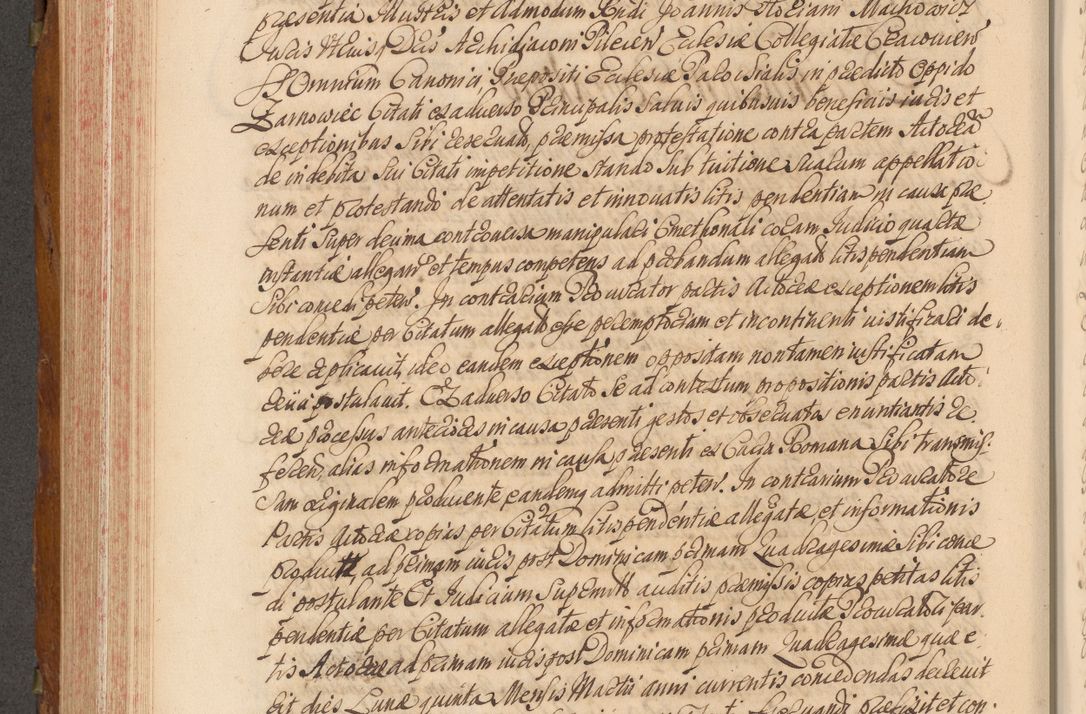 præsentia Illustris et Admodum Rndi Joannis Kociani Machowicz
Juris Utriusq Dris Archidiaconi Pilecen Eclesiæ Collegiatæ Cracovien
SS Omnium Canonici Præpositi Ecclesiæ Parochialis in prædicto Oppido
Żarnowiec Citati ex adverso Principalis Salvis quibusvis beneficiis iuris et
exceptionibus Sibi reservand, præmissa protestatione contra partem Actoream
de indebita Sui Citati impetitione stando Sub tuitione Suarum appellatio
num et protestando de attentatis et innovatis litis pendentiam in causa præ
senti Super decima controversa manipulari Cmethonali coram Judicio quartæ
instantiæ allegan et tempus competens ad probandum allegatam litis pendentiam
Sibi concedi peten. In contrarium Procurator partis Actoreæ exceptionem litis
pendentiæ per Citatum allegatam esse peremptoriam et incontinenti iustificari de
bere replicavit, ideo eandem exceptionem oppositam non tamen iustificatam
reiici postulavit. Ex adverso Citato Se ad contestum propositionis partis Acto
reæ processus anteriores in causa præsenti gestos et observatos enuntiantis re
feren, alias informationem in causa præsenti ex Curia Romana Sibi transmis
Sam originalem producente eandemq admitti peten. In contrarium Procuratore
Partis Actoreæ copias per Citatum litis pendentiæ allegatæ et informationis
productæ ad primam iuris post Dominicam primam Quadragesimæ Sibi conce
di postulante Et Judicium Supremum auditis præmissis copias petitas litis
pendentiæ per Citatum allegatæ et informationis productæ Procuratori par
tis Actoreæ ad primam iuris post Dominicam primam Quadragesimæ quæ e
rit dies Lunæ quinta Mensis Martii anni currentis concedendas decrevit